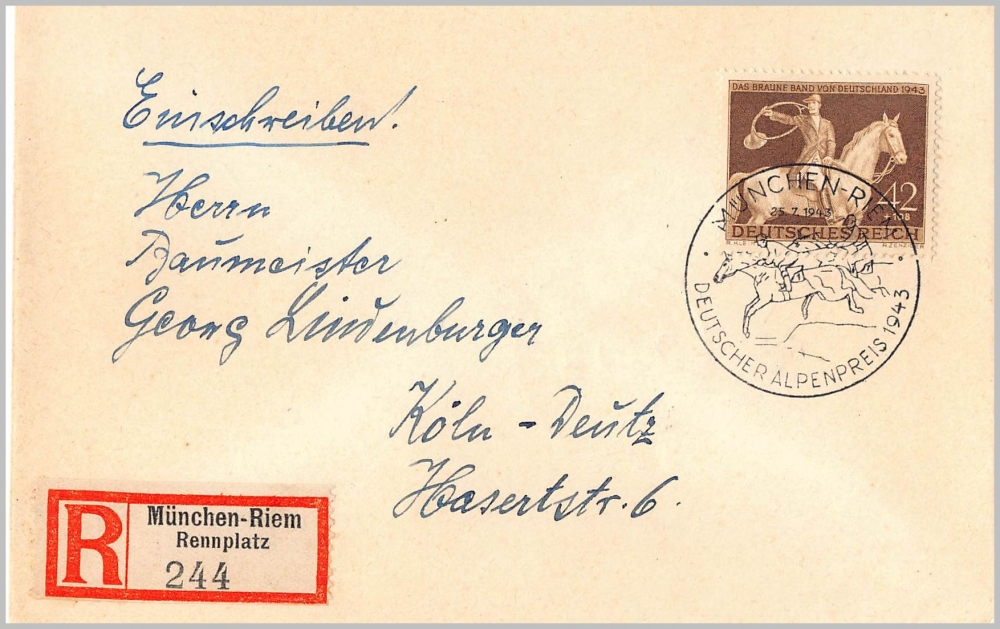 Einschreiben!
Herrn
Baumeister
Georg Lindenburger
Köln - Deutz
Hasertstr. 6.
DAS BRAUNE BAND VON DEUTSCHLAND 1943
42
+108
DEUTSCHES REICH
MÜNCHEN-RIEM
25.7.1943
DEUTSCHER ALPENPREIS 1943
R
München-Riem
Rennplatz
244